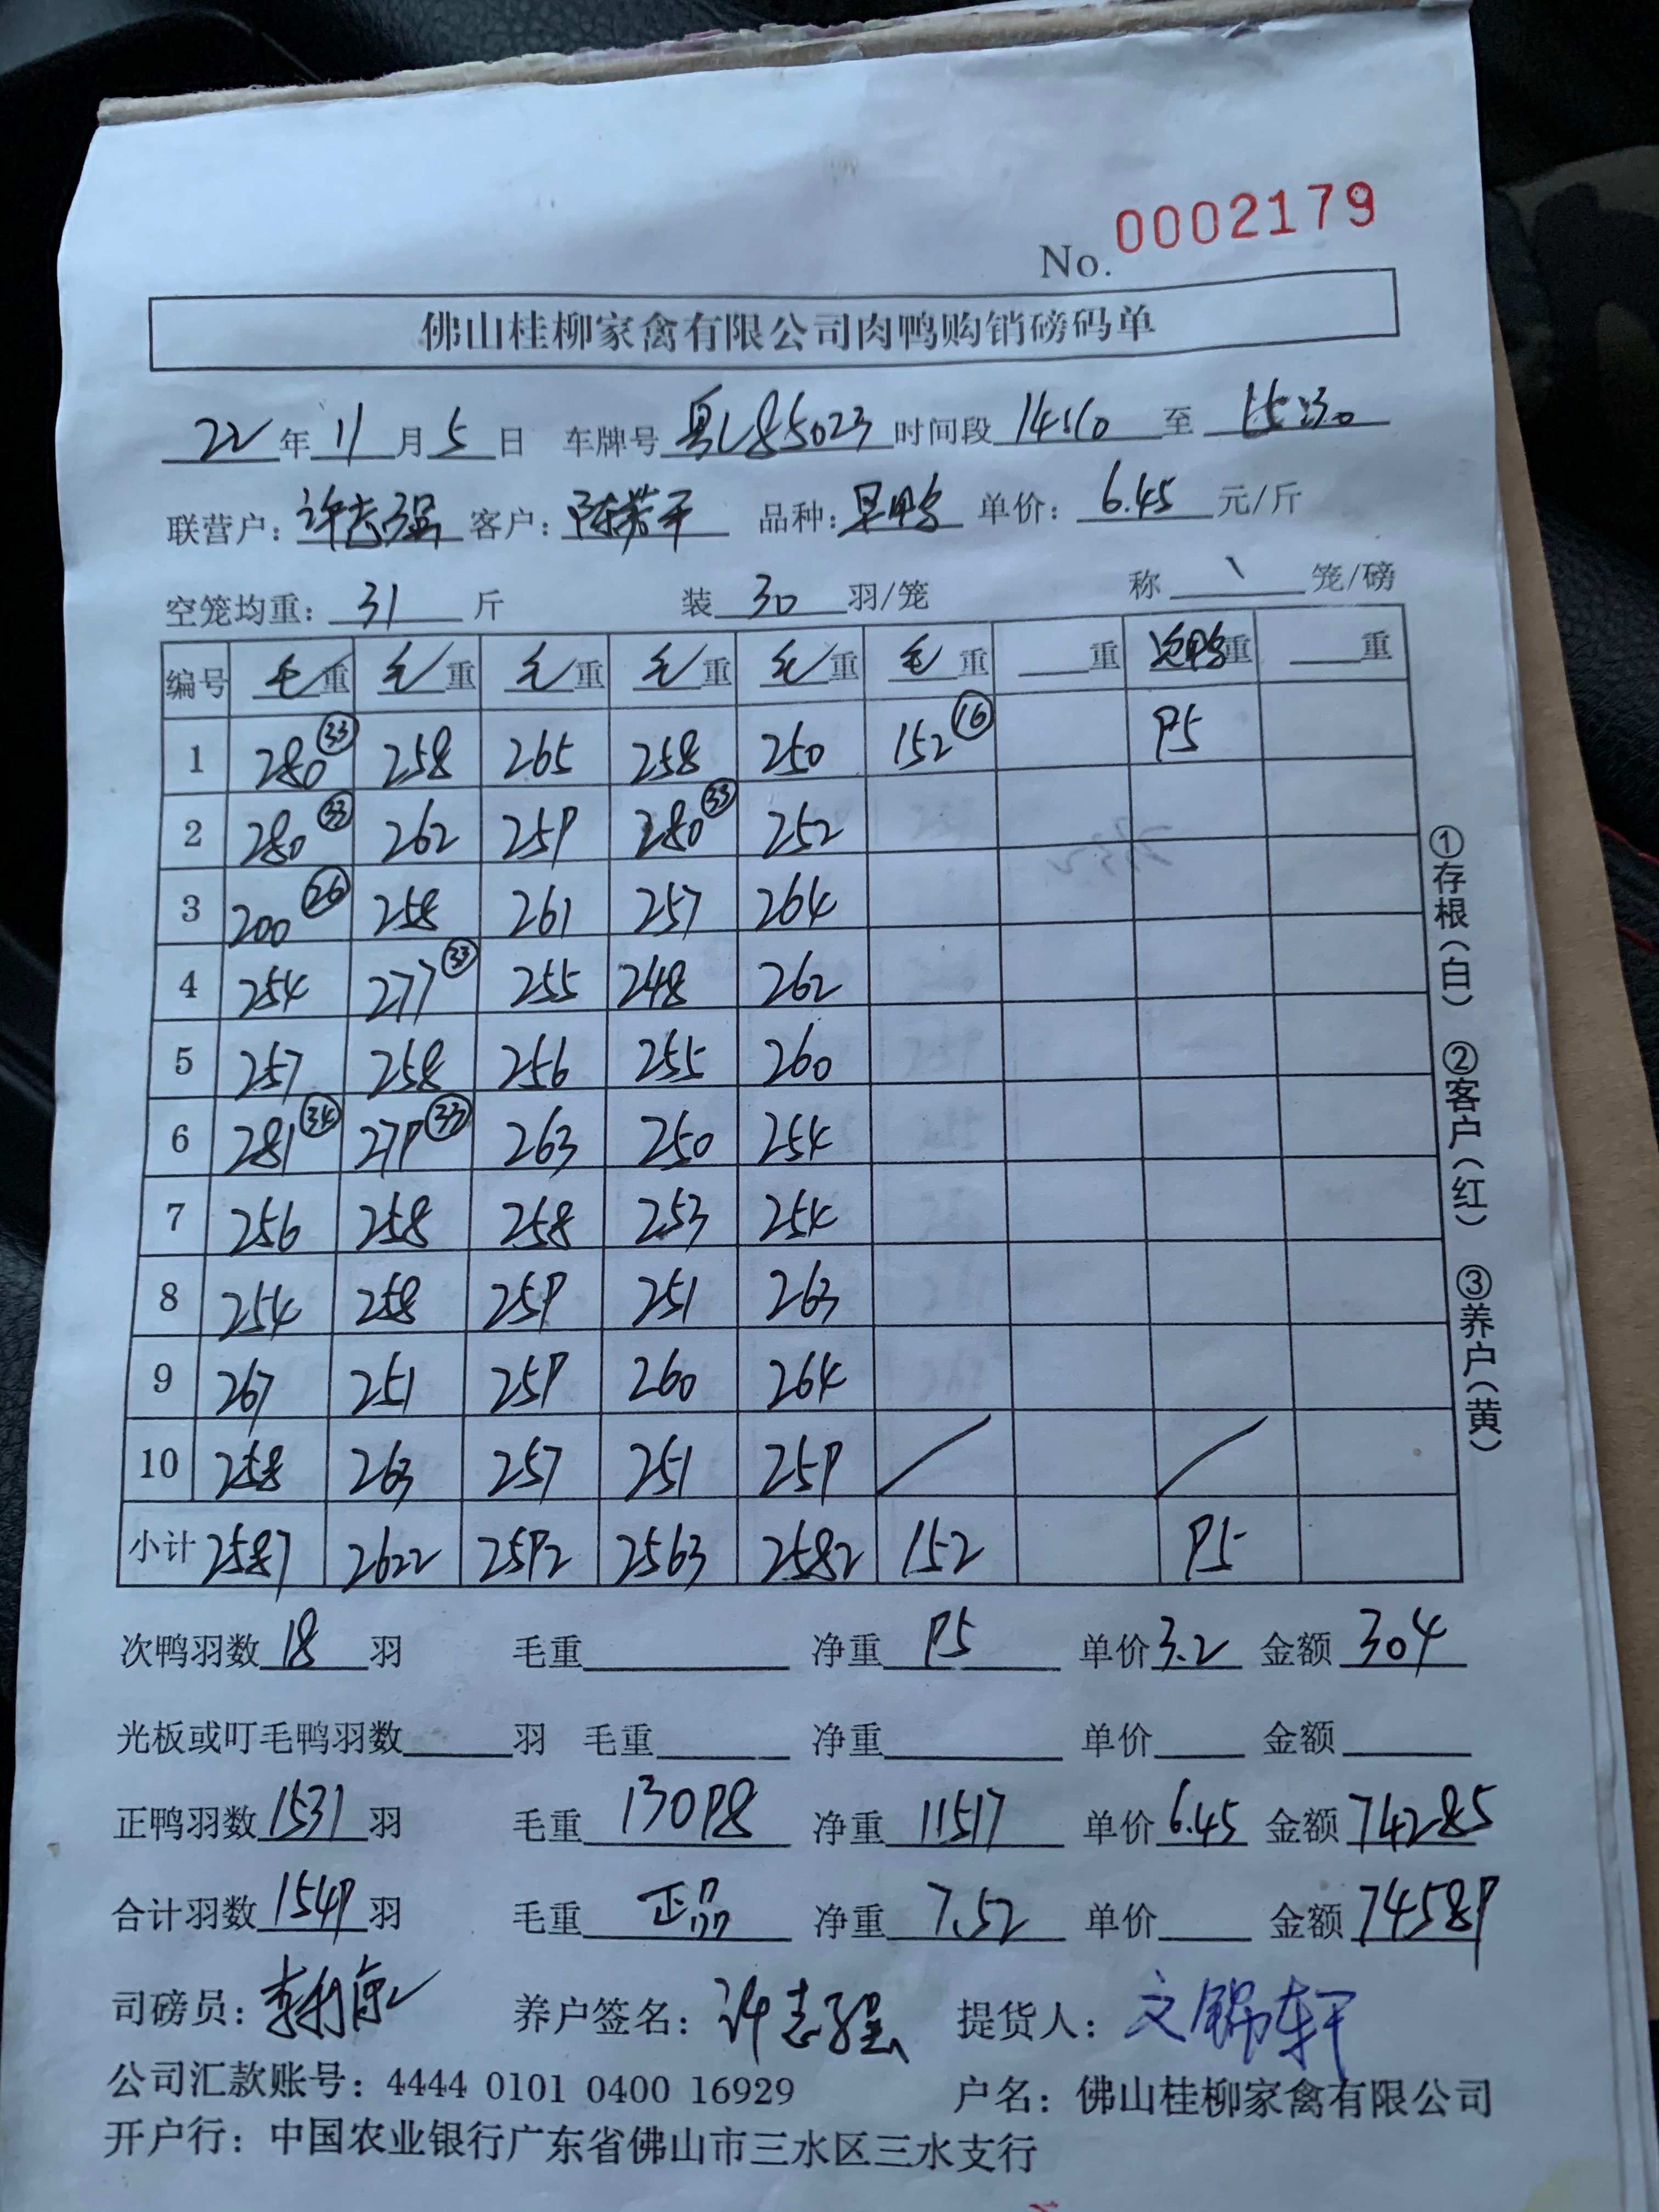 No. 0002179
佛山桂柳家禽有限公司肉鸭购销磅码单
22年11月5日 车牌号 粤L85023 时间段 14:10 至 15:30
联营户：许志强 客户：陈芳平 品种：旱鸭 单价：6.45 元/斤
空笼均重：31 斤 装 30 羽/笼 称 1 笼/磅
编号 毛重 毛重 毛重 毛重 毛重 毛重 重 次鸭重 重
1 280 ㉝ 258 265 258 250 152 ⑯ 95
2 280 ㉝ 262 259 280 ㉝ 252
3 200 ㉖ 258 261 257 264
4 254 277 ㉝ 255 248 262
5 257 258 256 255 260
6 281 ㉞ 279 ㉝ 263 250 254
7 256 258 258 253 254
8 254 258 259 251 263
9 267 251 259 260 264
10 258 263 257 251 259
小计 2587 2622 2592 2563 2582 152 95
①存根（白） ②客户（红） ③养户（黄）
次鸭羽数 18 羽 毛重 净重 95 单价 3.2 金额 304
光板或叮毛鸭羽数 羽 毛重 净重 单价 金额
正鸭羽数 1531 羽 毛重 13098 净重 11517 单价 6.45 金额 74285
合计羽数 1549 羽 毛重 正品 净重 7.52 单价 金额 74589
司磅员： 养户签名：许志强 提货人：文锦轩
公司汇款账号：4444 0101 0400 16929 户名：佛山桂柳家禽有限公司
开户行：中国农业银行广东省佛山市三水区三水支行